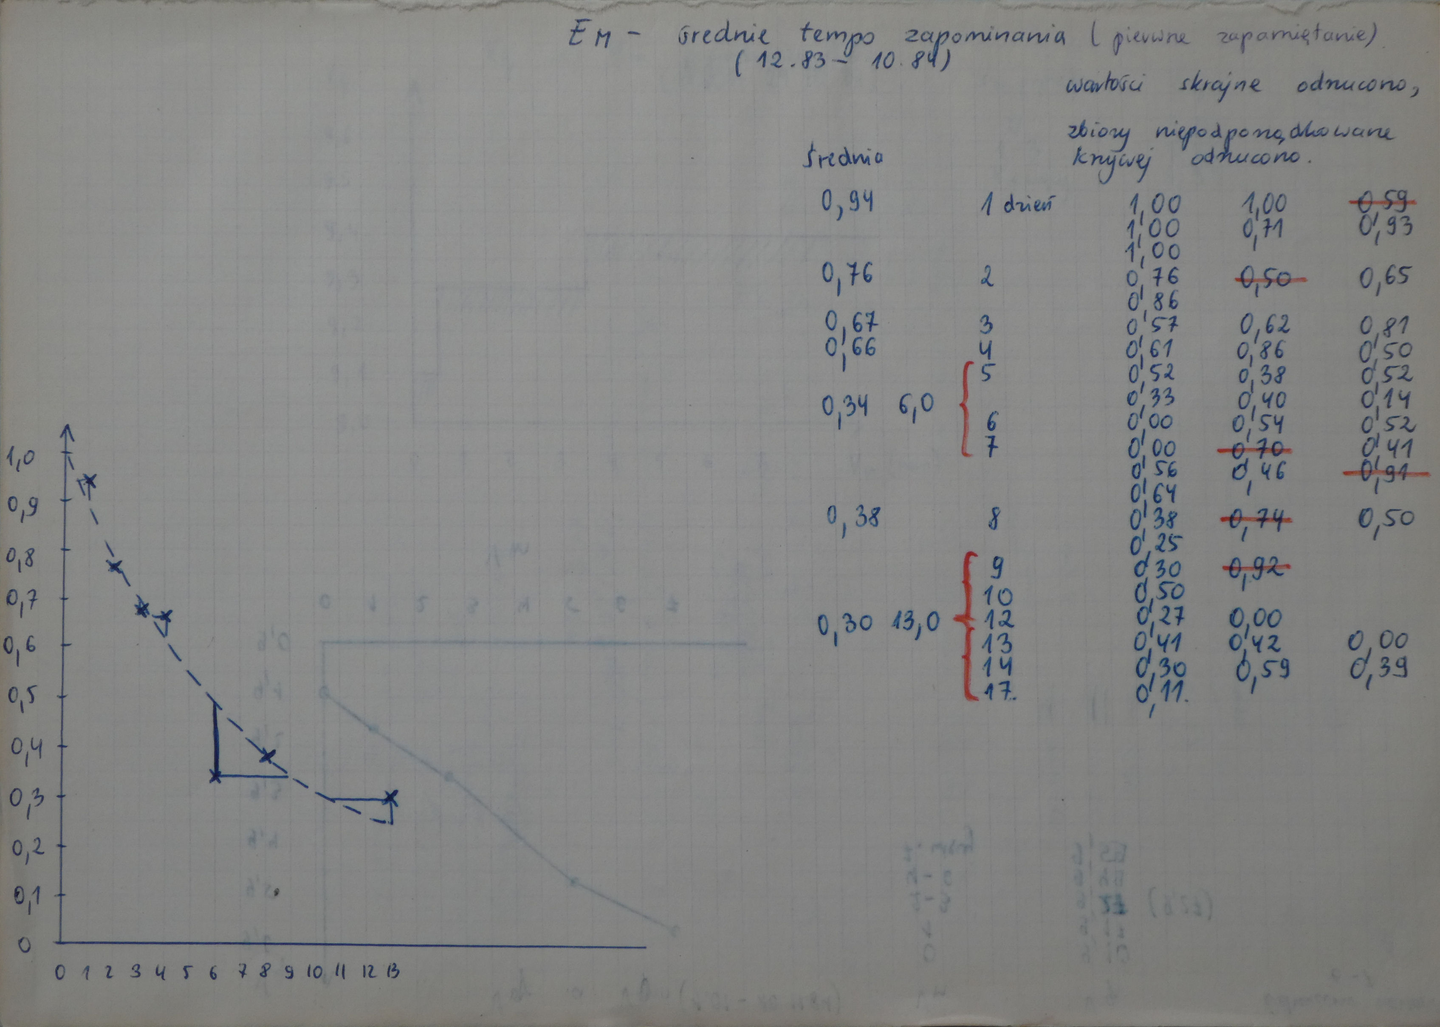 EM - średnie tempo zapominania (pierwne zapamiętanie)
(12.83 - 10.84)
wartości skrajne odrzucono,
zbiory niepodporządkowane
krzywej odrzucono.
średnia
0,94 1 dzień 1,00 1,00 0,59
1,00 0,71 0,93
1,00
0,76 2 0,76 0,50 0,65
0,86
0,67 3 0,57 0,62 0,81
0,66 4 0,61 0,86 0,50
5 0,52 0,38 0,52
0,34 6,0 0,33 0,40 0,14
6 0,00 0,54 0,52
7 0,00 0,70 0,41
0,56 0,46 0,91
0,64
0,38 8 0,38 0,74 0,50
0,25
9 0,30 0,92
10 0,50
0,30 13,0 12 0,27 0,00
13 0,41 0,42 0,00
14 0,30 0,59 0,39
17. 0,11.
1,0
0,9
0,8
0,7
0,6
0,5
0,4
0,3
0,2
0,1
0
0 1 2 3 4 5 6 7 8 9 10 11 12 13